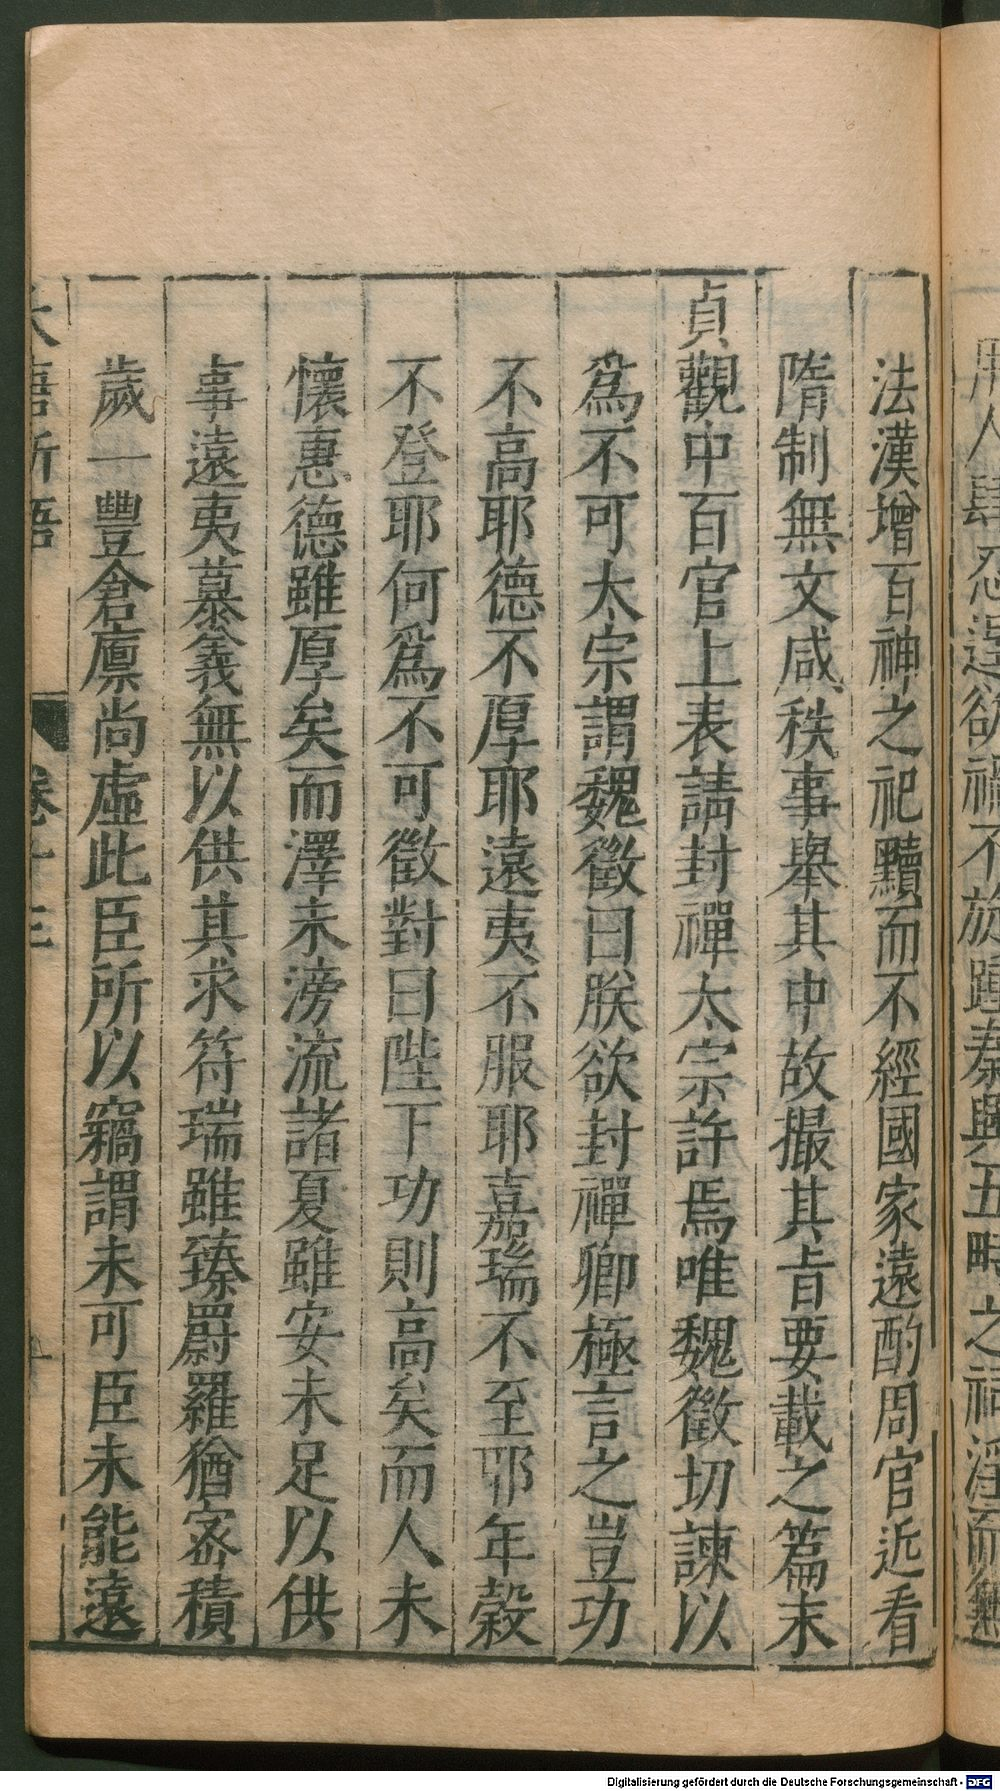 用人肆忍違欲禋不旋踵秦興五畤之祠淫而無
法漢增百神之祀黷而不經國家遠酌周官近看
隋制無文咸秩事舉其中故撮其旨要載之篇末
貞觀中百官上表請封禪太宗許焉唯魏徵切諫以
爲不可太宗謂魏徵曰朕欲封禪卿極言之豈功
不高耶德不厚耶遠夷不服耶嘉瑞不至耶年穀
不登耶何爲不可徵對曰陛下功則高矣而人未
懷惠德雖厚矣而澤未滂流諸夏雖安未足以供
事遠夷慕義無以供其求符瑞雖臻罻羅猶密積
歲一豐倉廩尚虛此臣所以竊謂未可臣未能遠
大唐新語 卷十三
Digitalisierung gefördert durch die Deutsche Forschungsgemeinschaft - DFG